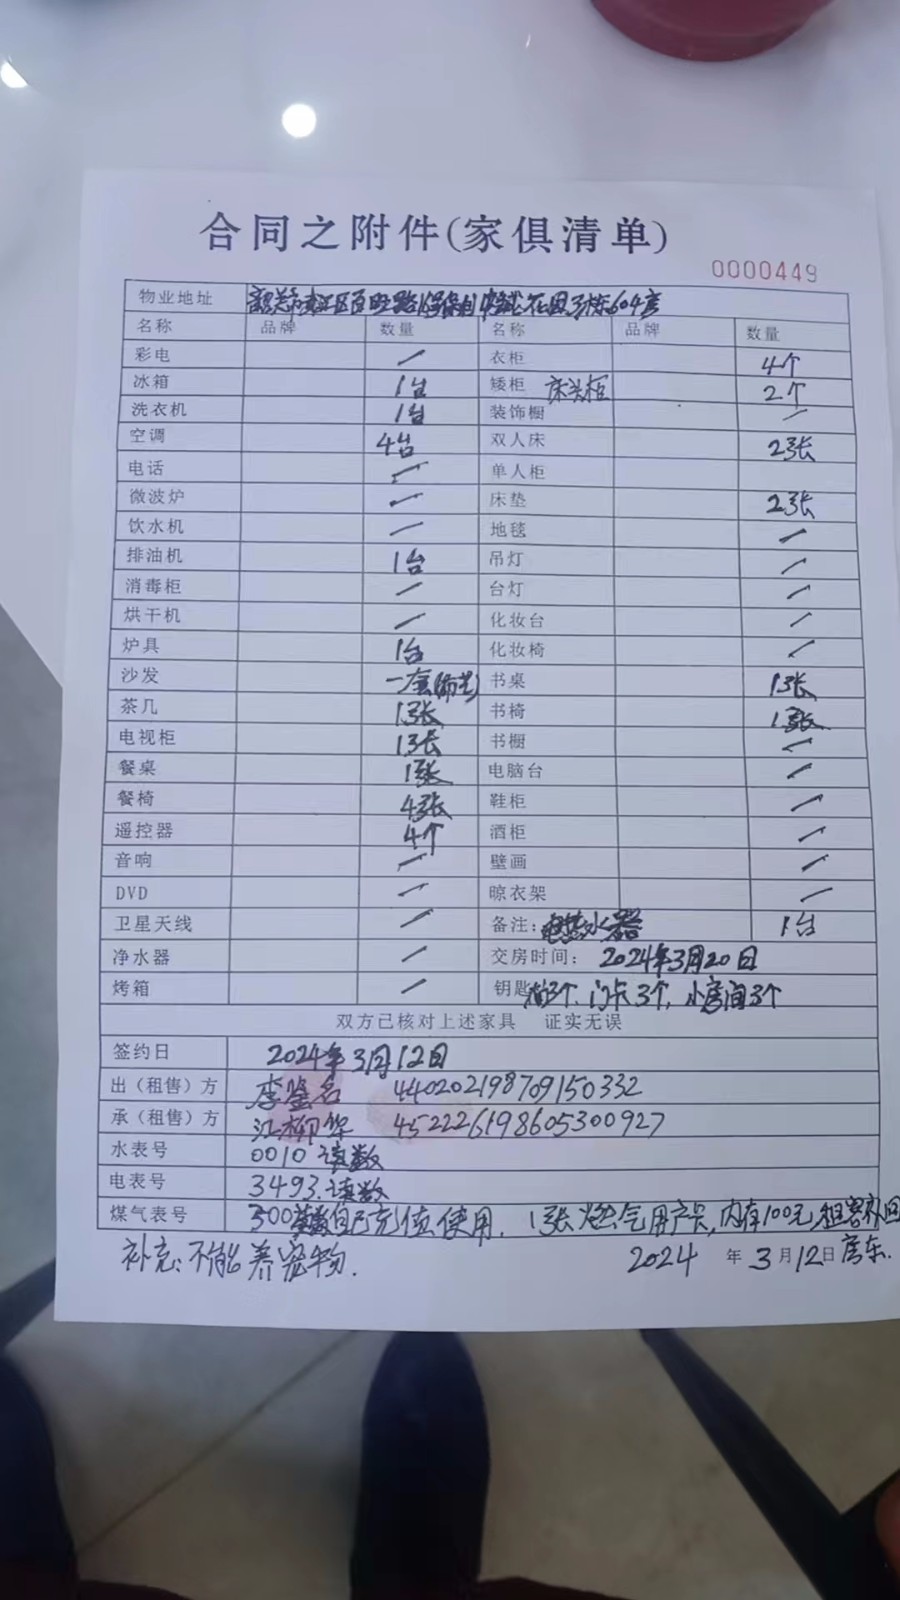 合同之附件(家俱清单)
0000449
物业地址 韶关市浈江区百旺路 花园3栋604房
名称 品牌 数量 名称 品牌 数量
彩电 / 衣柜 4个
冰箱 1台 矮柜 床头柜 2个
洗衣机 1台 装饰橱 /
空调 4台 双人床 2张
电话 / 单人柜
微波炉 / 床垫 2张
饮水机 / 地毯 /
排油机 1台 吊灯 /
消毒柜 / 台灯 /
烘干机 / 化妆台 /
炉具 1台 化妆椅 /
沙发 一套(布艺) 书桌 1张
茶几 1张 书椅 1张
电视柜 1张 书橱 /
餐桌 1张 电脑台 /
餐椅 4张 鞋柜 /
遥控器 4个 酒柜 /
音响 / 壁画 /
DVD / 晾衣架 /
卫星天线 / 备注: 电热水器 1台
净水器 / 交房时间: 2024年3月20日
烤箱 / 钥匙 3个、门卡3个,小房间3个
双方已核对上述家具 证实无误
签约日 2024年3月12日
出(租售)方 李鉴名 440202198709150332
承(租售)方 江柳华 452226198605300927
水表号 0010 读数
电表号 3493.读数
煤气表号 300 自己充值使用. 1张燃气用户卡,内存100元,租客补回
补充:不能养宠物. 2024年3月12日 房东.